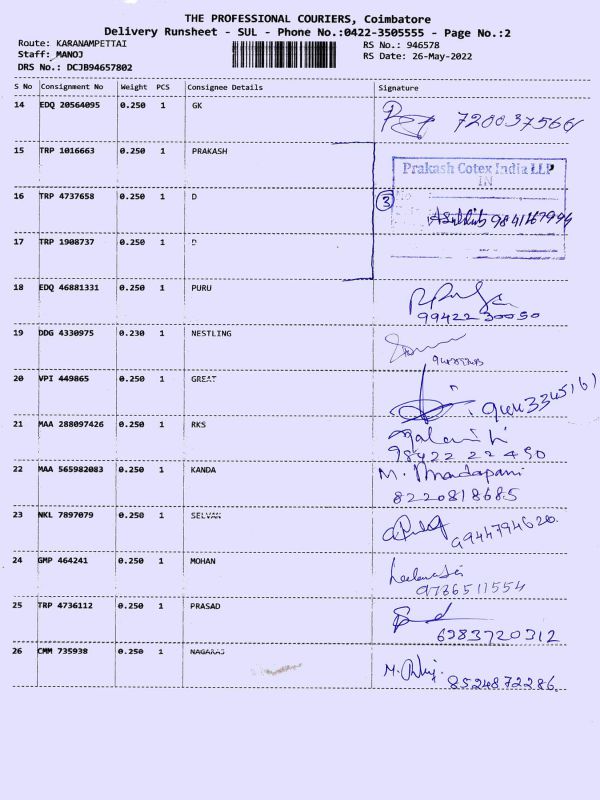 THE PROFESSIONAL COURIERS, Coimbatore
Delivery Runsheet - SUL - Phone No.:0422-3505555 - Page No.:2
Route: KARANAMPETTAI RS No.: 946578
Staff: MANOJ RS Date: 26-May-2022
DRS No.: DCJB94657802
S No Consignment No Weight PCS Consignee Details Signature
14 EDQ 20564095 0.250 1 GK
15 TRP 1016663 0.250 1 PRAKASH
Prakash Cotex India LLP
IN
16 TRP 4737658 0.250 1 D 3
17 TRP 1908737 0.250 1 D
18 EDQ 46881331 0.250 1 PURU
99422 30050
19 DDG 4330975 0.230 1 NESTLING
20 VPI 449865 0.250 1 GREAT
21 MAA 288097426 0.250 1 RKS
98422 22450
22 MAA 565982083 0.250 1 KANDA M.
8220818685
23 NKL 7897079 0.250 1 SELVAN
9944794620.
24 GMP 464241 0.250 1 MOHAN
9786511554
25 TRP 4736112 0.250 1 PRASAD
6383720312
26 CMM 735938 0.250 1 NAGARAJ M.
8524872286.